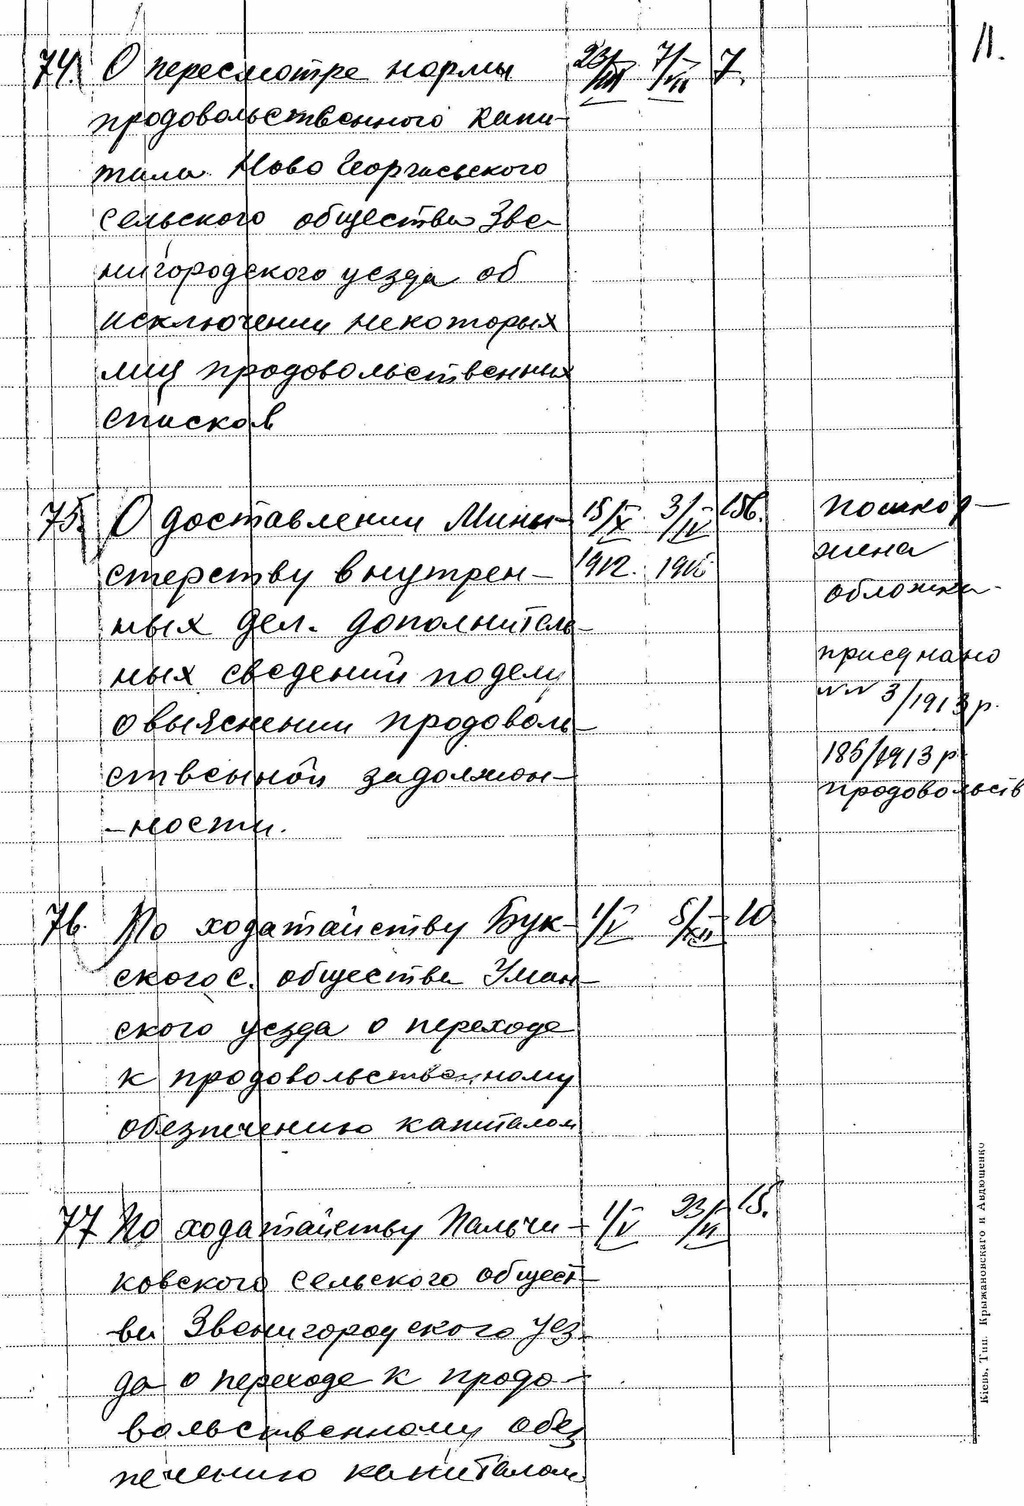 11.
74. О пересмотре нормы 23/III 7/VII 7.
продовольственного капи-
тала Ново Георгиевьского
сельского общества Зве-
нигородского уезда об
исключении некоторых
лиц продовольственных
списков
75. О доставлении Мини- 15/X 3/IV 156.
стерству внутрен- 1912.
ных дел. дополнитель-
ных сведений по делу
о выяснении продоволь-
ственной задолжон-
-ности.
пошкод-
жена
обложка.
приєднано
№№ 3/1913 р.
185/1913 р.
продовольств
76. По ходатайству Бук- 1/V 5/XII 10
ского с. общества Уман-
ского уезда о переходе
к продовольственному
обезпечению капиталом
77 По ходатайству Пальчи- 1/V 23/VI 15.
ковского сельского общест-
ва Звенигородского уез-
да о переходе к продо-
вольственному обез
печению капиталом
Кіевъ, Тип. Крыжановскаго и Авдюшенко